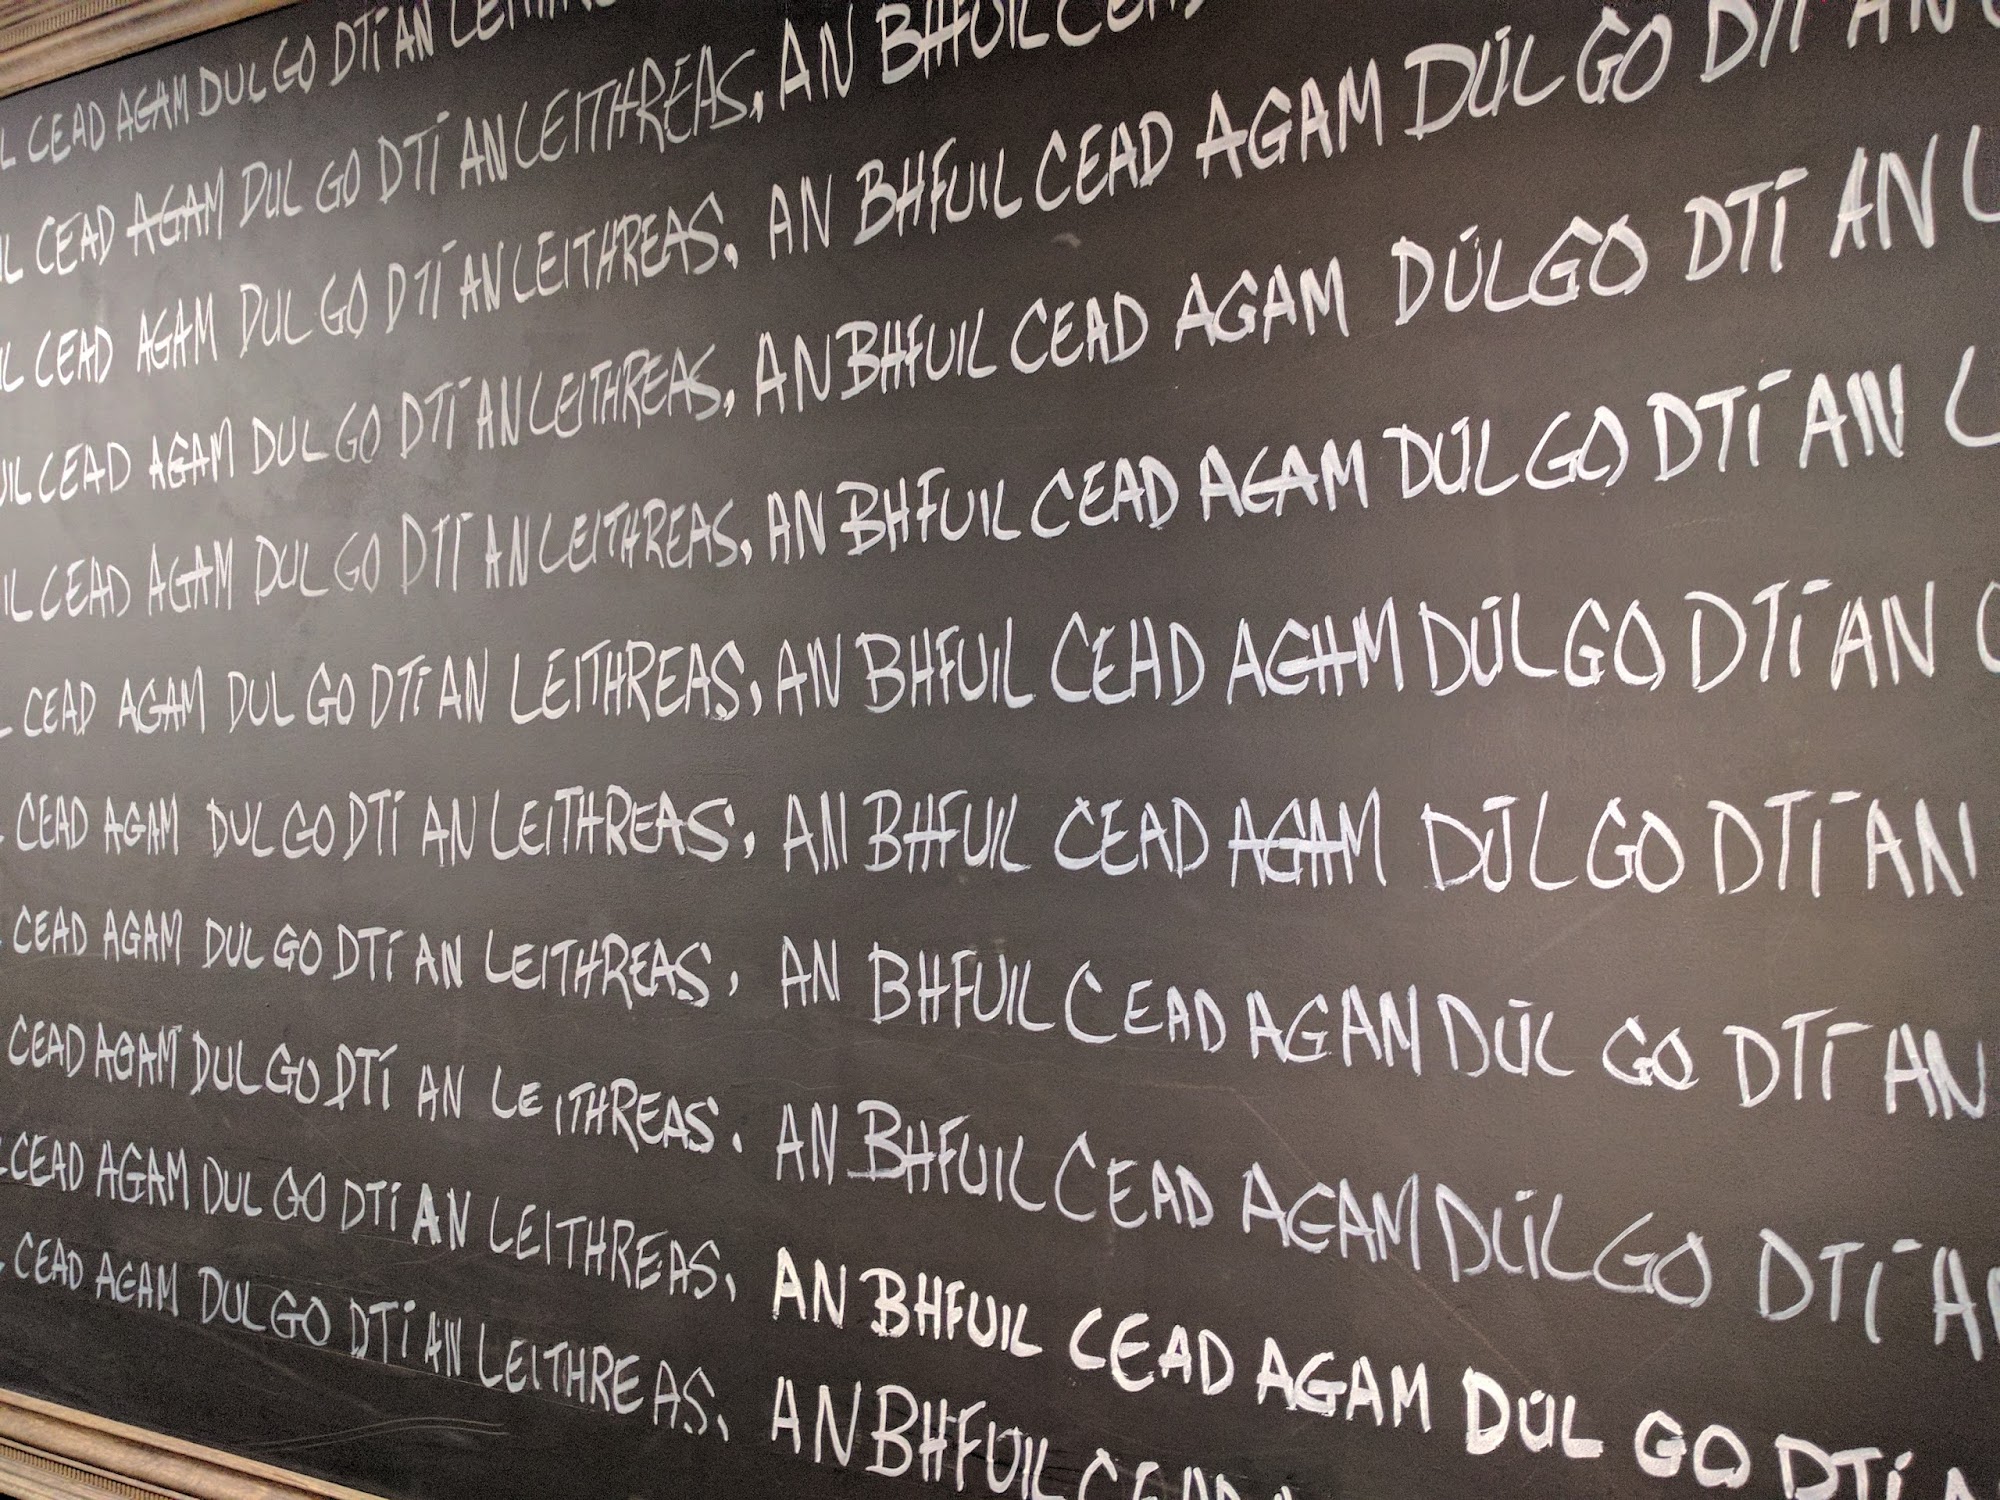 CEAD AGAM DUL GO DTÍ AN
CEAD AGAM DUL GO DTÍ AN LEITHREAS, AN BHFUIL
CEAD AGAM DUL GO DTÍ AN LEITHREAS, AN BHFUIL CEAD AGAM DÚL GO DTÍ AN
CEAD AGAM DUL GO DTÍ AN LEITHREAS, AN BHFUIL CEAD AGAM DÚL GO DTÍ AN L
CEAD AGAM DUL GO DTÍ AN LEITHREAS, AN BHFUIL CEAD AGAM DÚL GO DTÍ AN L
CEAD AGAM DUL GO DTÍ AN LEITHREAS, AN BHFUIL CEAD AGAM DÚL GO DTÍ AN
CEAD AGAM DUL GO DTÍ AN LEITHREAS, AN BHFUIL CEAD AGAM DÚL GO DTÍ AN
CEAD AGAM DUL GO DTÍ AN LEITHREAS, AN BHFUIL CEAD AGAM DÚL GO DTÍ AN
CEAD AGAM DUL GO DTÍ AN LEITHREAS. AN BHFUIL CEAD AGAM DÚL GO DTÍ AN
CEAD AGAM DUL GO DTÍ AN LEITHREAS, AN BHFUIL CEAD AGAM DÚL GO DTÍ
CEAD AGAM DUL GO DTÍ AN LEITHREAS, AN BHFUIL CEAD